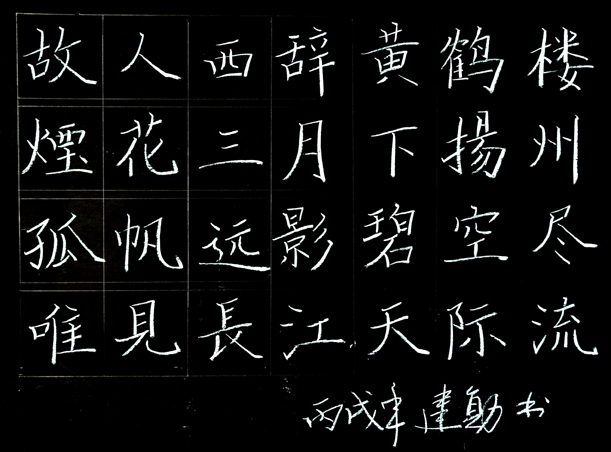 故人西辞黄鹤楼
煙花三月下揚州
孤帆远影碧空尽
唯見長江天际流
丙戌年建勛书